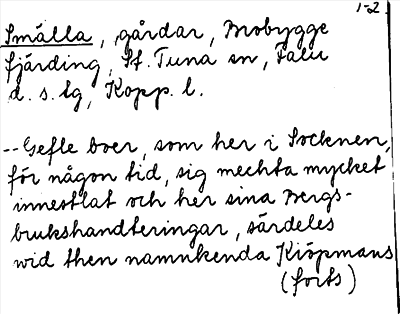 1-2.
Smälla, gårdar, Mobygge
fjärding, St. Tuna sn, Falu
d. s. lg, Kopp. l.
-- Gefle boer, som her i Socknen,
för någon tid, sig mechta mycket
innestlat och her sina Bergs-
brukshandteringar, särdeles
wid then namnkenda Kiöpmans
(forts)